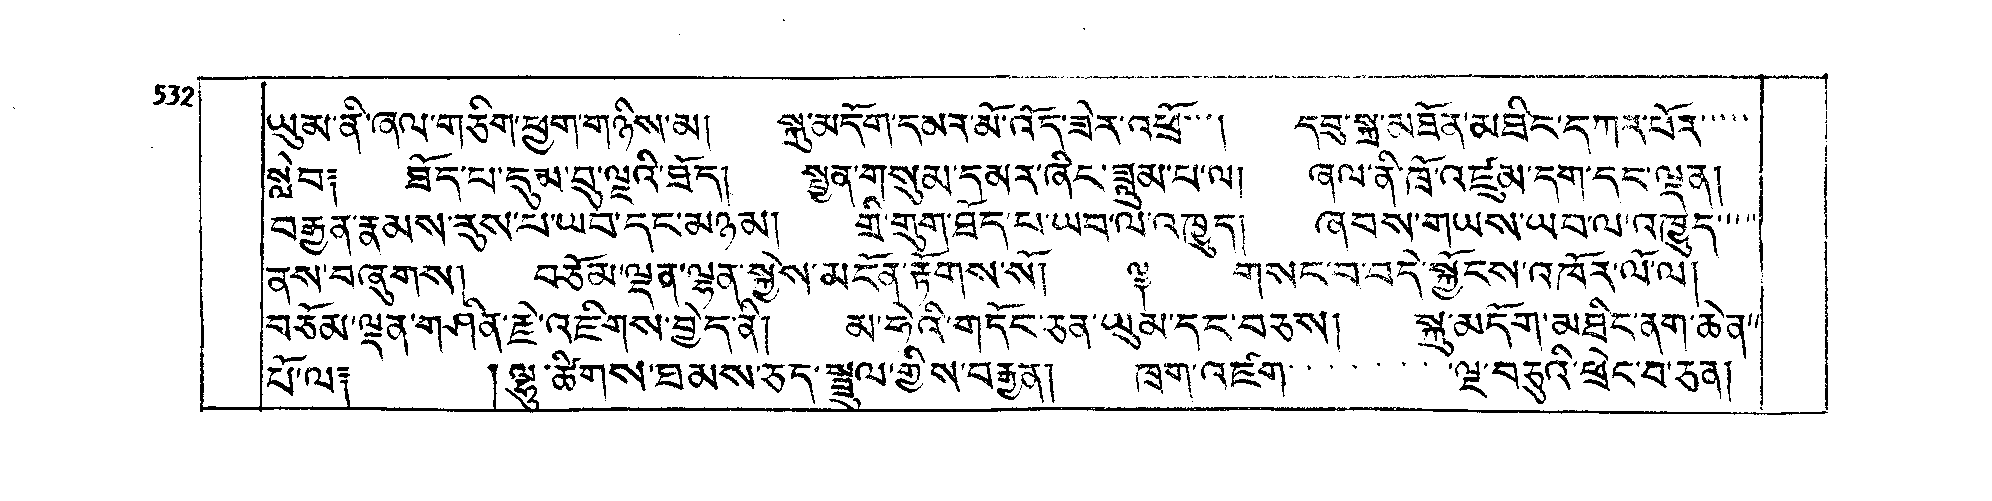 532
ཡུམ་ནི་ཞལ་གཅིག་ཕྱག་གཉིས་མ། སྐུ་མདོག་དམར་མོ་འོད་ཟེར་འཕྲོ༌༌༌། དབུ་སྐྲ་མཐོན་མཐིང་དཀར་པོར༌༌༌༌༌
སྡེ་བ༔ ཐོད་པ་དུམ་བུ་ལྔའི་ཐོད། སྤྱན་གསུམ་དམར་ཞིང་ཟླུམ་པ་ལ། ཞལ་ནི་ཁྲོ་འཛུམ་དག་དང་ལྡན།
བརྒྱན་རྣམས་རུས་པ་ཡབ་དང་མཉམ། གྲི་གུག་ཐོད་པ་ཡབ་ལ་འཁྱུད། ཞབས་གཡས་ཡབ་ལ་འཁྱུད༌༌༌༌
ནས་བཞུགས། བཅོམ་ལྡན་ལྷན་སྐྱེས་མངོན་རྟོགས་སོ། ༈ གསང་བ་བདེ་སྐྱོངས་འཁོར་ལོ་ལ།
བཅོམ་ལྡན་གཤིན་རྗེ་འཇིགས་བྱེད་ནི། མ་ཧེའི་གདོང་ཅན་ཡུམ་དང་བཅས། སྐུ་མདོག་མཐིང་ནག་ཆེན༌༌
པོ་ལ༔ །ལྷུ་ཚིགས་ཐམས་ཅད་སྦྲུལ་གྱིས་བརྒྱན། ཁྲག་འཛག༌༌༌༌༌༌༌༌ལྔ་བཅུའི་ཕྲེང་བ་ཅན།